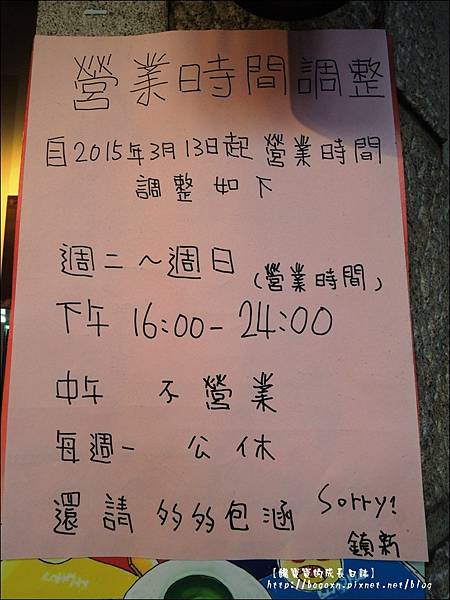 營業時間調整
自2015年3月13日起 營業時間
調整如下
週二～週日 (營業時間)
下午 16:00-24:00
中午 不營業
每週一 公休
還請多多包涵 Sorry!
鎮新
的成長日誌
http://boooxn.pixnet.net/blog